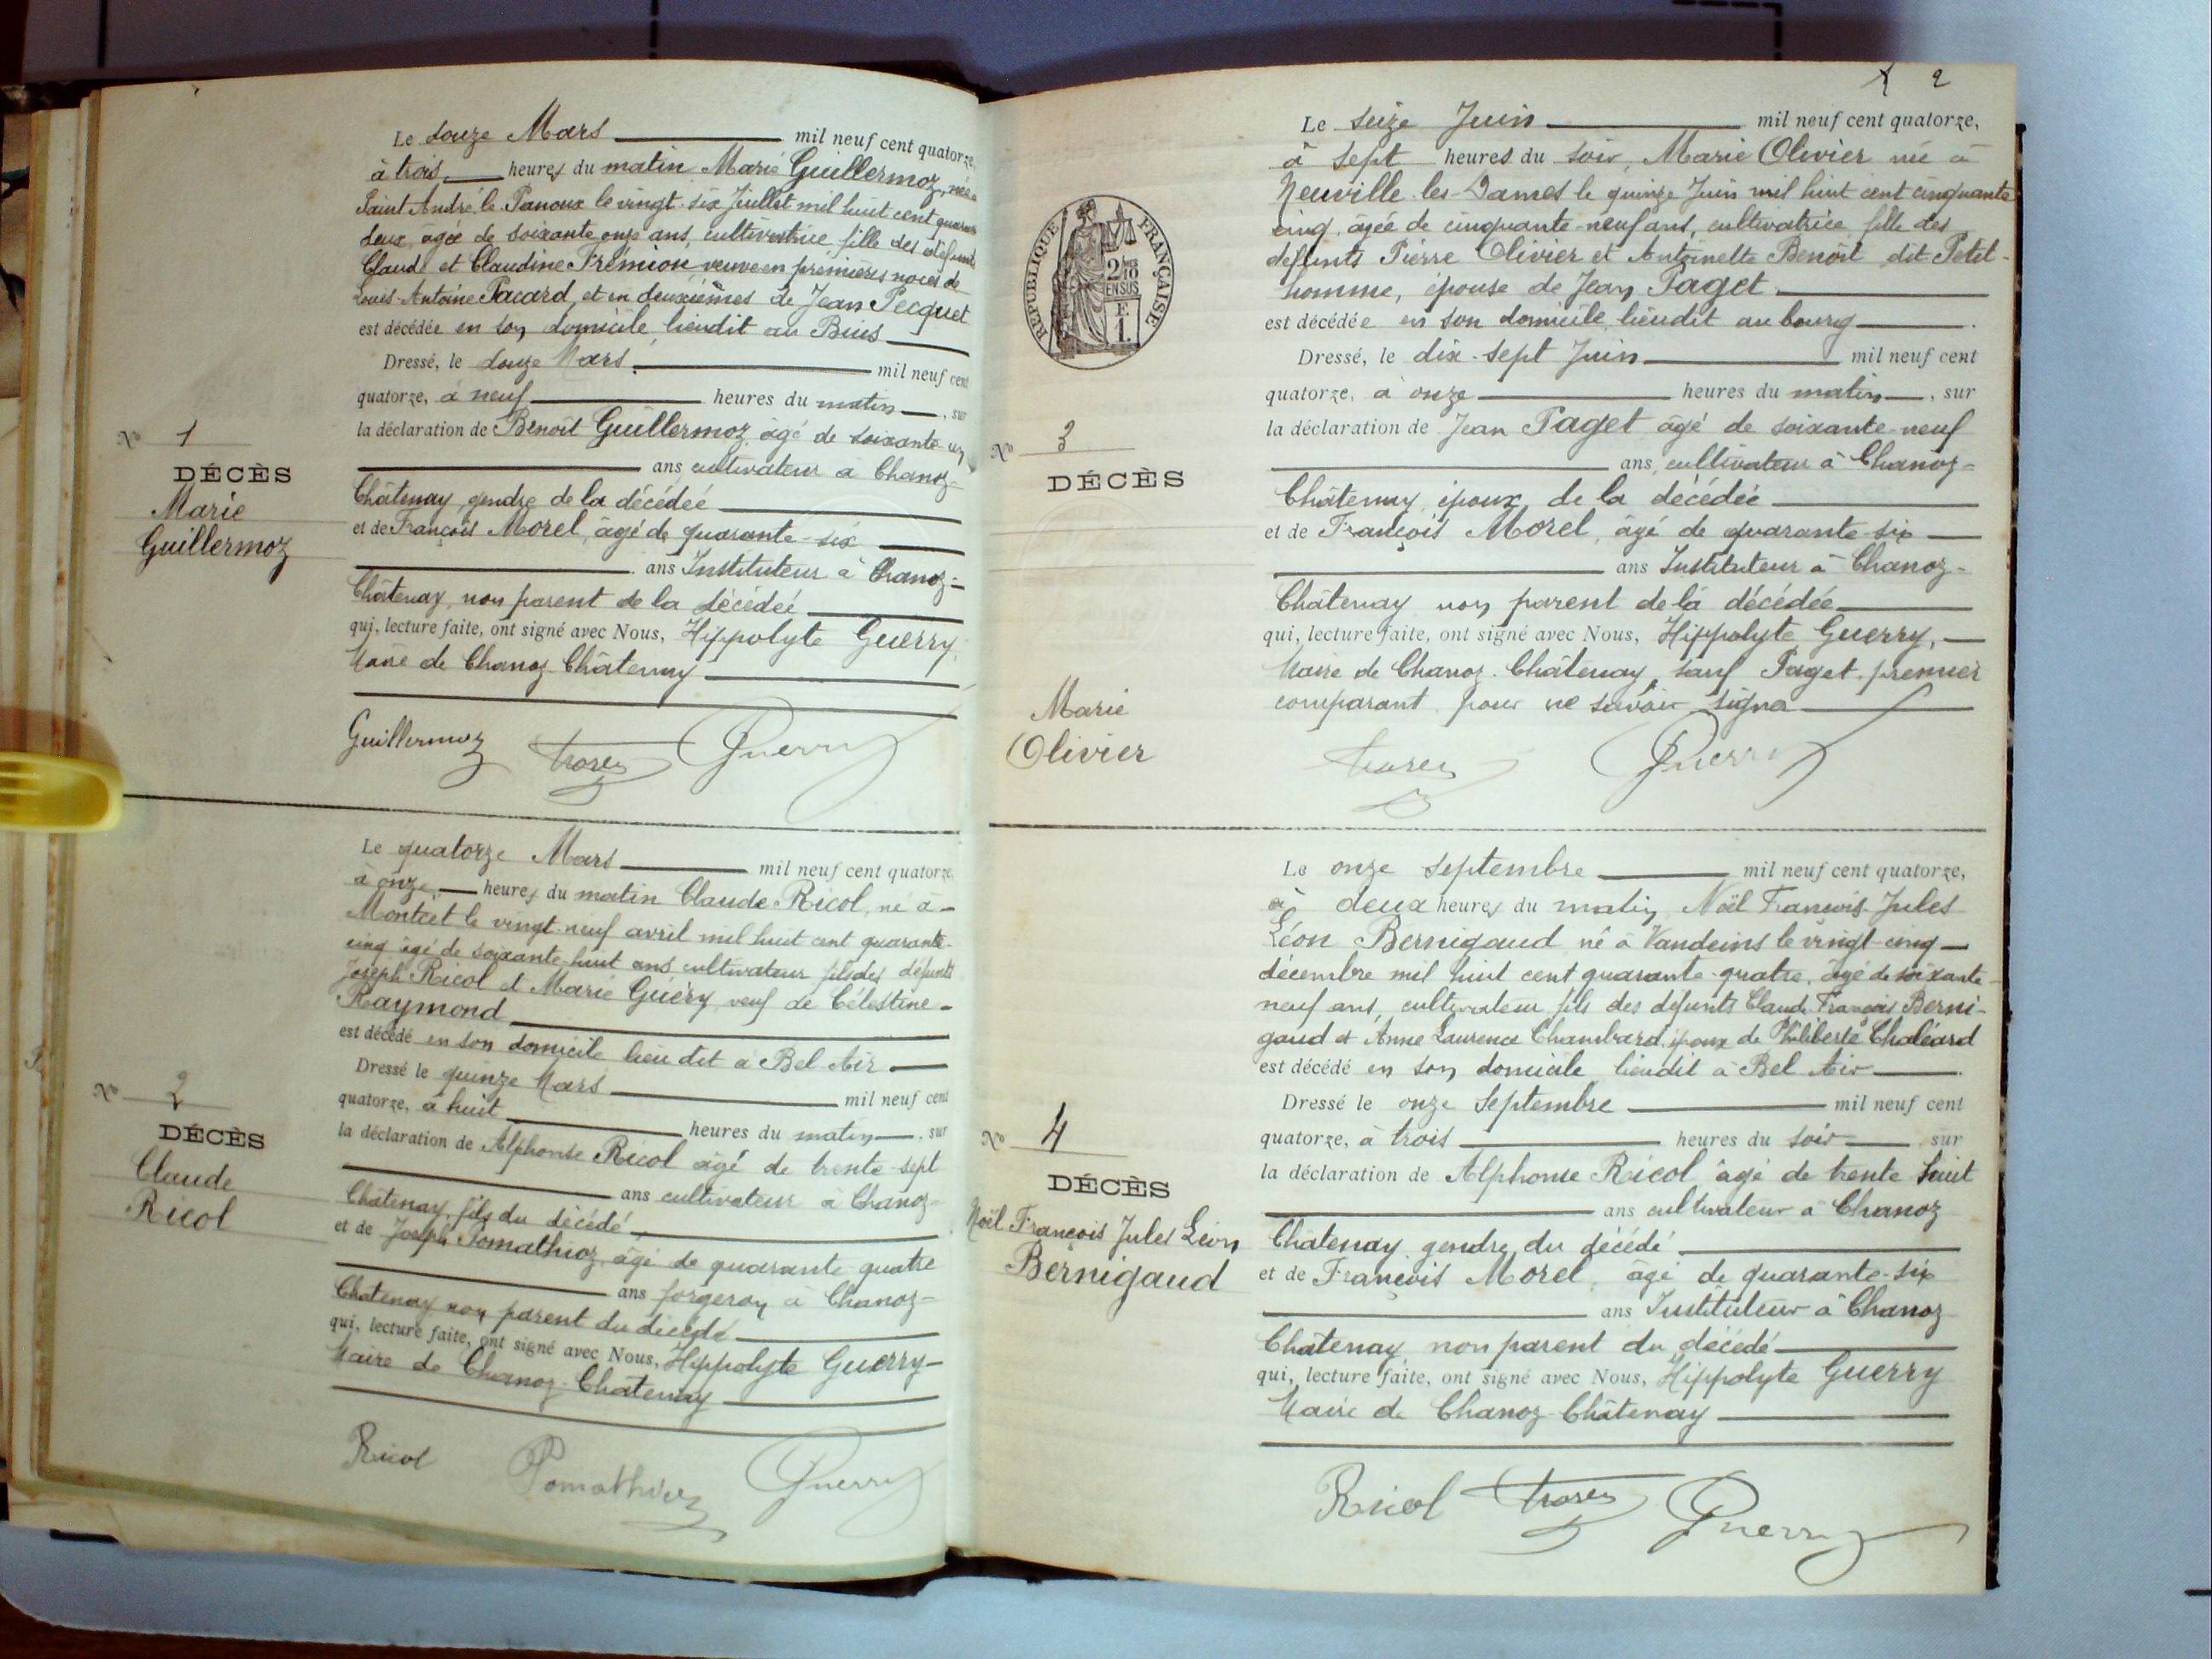 Le douze Mars mil neuf cent quatorze,
à trois heures du matin Marie Guillermoz, née à
Saint André le Panoux le vingt-six Juillet mil huit cent quarante
deux, âgée de soixante onze ans, cultivatrice fille des défunts
Claude et Claudine Frémion veuve en premières noces de
Louis-Antoine Pacard, et en deuxièmes de Jean Pecquet
est décédée en son domicile, lieudit au Buis
Dressé, le douze Mars mil neuf cent
quatorze, à neuf heures du matin, sur
la déclaration de Benoît Guillermoz âgé de soixante un
ans cultivateur à Chanoz-
Châtenay, gendre de la décédée
et de François Morel, âgé de quarante-six
ans Instituteur à Chanoz-
Châtenay, non parent de la décédée
qui, lecture faite, ont signé avec Nous, Hippolyte Guerry,
Maire de Chanoz-Châtenay
Guillermoz Morel Guerry
N° 1
DÉCÈS
Marie
Guillermoz
Le quatorze Mars mil neuf cent quatorze,
à onze heures du matin Claude Ricol, né à
Montcet le vingt-neuf avril mil huit cent quarante-
cinq âgé de soixante-huit ans cultivateur fils des défunts
Joseph Ricol et Marie Guéry, veuf de Célestine
Raymond
est décédé en son domicile lieu dit à Bel Air
Dressé le quinze Mars mil neuf cent
quatorze, à huit heures du matin, sur
la déclaration de Alphonse Ricol âgé de trente-sept
ans cultivateur à Chanoz-
Châtenay, fils du décédé
et de Joseph Pomathioz, âgé de quarante quatre
ans forgeron à Chanoz-
Châtenay non parent du décédé
qui, lecture faite, ont signé avec Nous, Hippolyte Guerry
Maire de Chanoz-Châtenay
Ricol Pomathioz Guerry
N° 2
DÉCÈS
Claude
Ricol
2
Le seize Juin mil neuf cent quatorze,
à sept heures du soir, Marie Olivier née à
Neuville-les-Dames le quinze Juin mil huit cent cinquante
cinq, âgée de cinquante-neuf ans, cultivatrice, fille des
défunts Pierre Olivier et Antoinette Benoît dit Petit-
homme, épouse de Jean Paget
est décédée en son domicile, lieudit au bourg
Dressé, le dix-sept Juin mil neuf cent
quatorze, à onze heures du matin, sur
la déclaration de Jean Paget âgé de soixante-neuf
ans, cultivateur à Chanoz-
Châtenay, époux de la décédée
et de François Morel, âgé de quarante-six
ans Instituteur à Chanoz-
Châtenay non parent de la décédée
qui, lecture faite, ont signé avec Nous, Hippolyte Guerry,
Maire de Chanoz-Châtenay, sauf Paget premier
comparant pour ne savoir signer
Morel Guerry
RÉPUBLIQUE FRANÇAISE
2/10
EN SUS
F
1.
N° 3
DÉCÈS
Marie
Olivier
Le onze Septembre mil neuf cent quatorze,
à deux heures du matin, Noël François Jules
Léon Bernigaud né à Vandeins le vingt-cinq
décembre mil huit cent quarante-quatre, âgé de soixante-
neuf ans, cultivateur fils des défunts Claude François Berni-
gaud et Anne Laurence Chambard, époux de Philiberte Chaléard
est décédé en son domicile, lieudit à Bel Air
Dressé le onze Septembre mil neuf cent
quatorze, à trois heures du soir, sur
la déclaration de Alphonse Ricol âgé de trente huit
ans cultivateur à Chanoz
Châtenay, gendre du décédé
et de François Morel, âgé de quarante-six
ans Instituteur à Chanoz
Châtenay non parent du décédé
qui, lecture faite, ont signé avec Nous, Hippolyte Guerry
Maire de Chanoz-Châtenay
Ricol Morel Guerry
N° 4
DÉCÈS
Noël François Jules Léon
Bernigaud